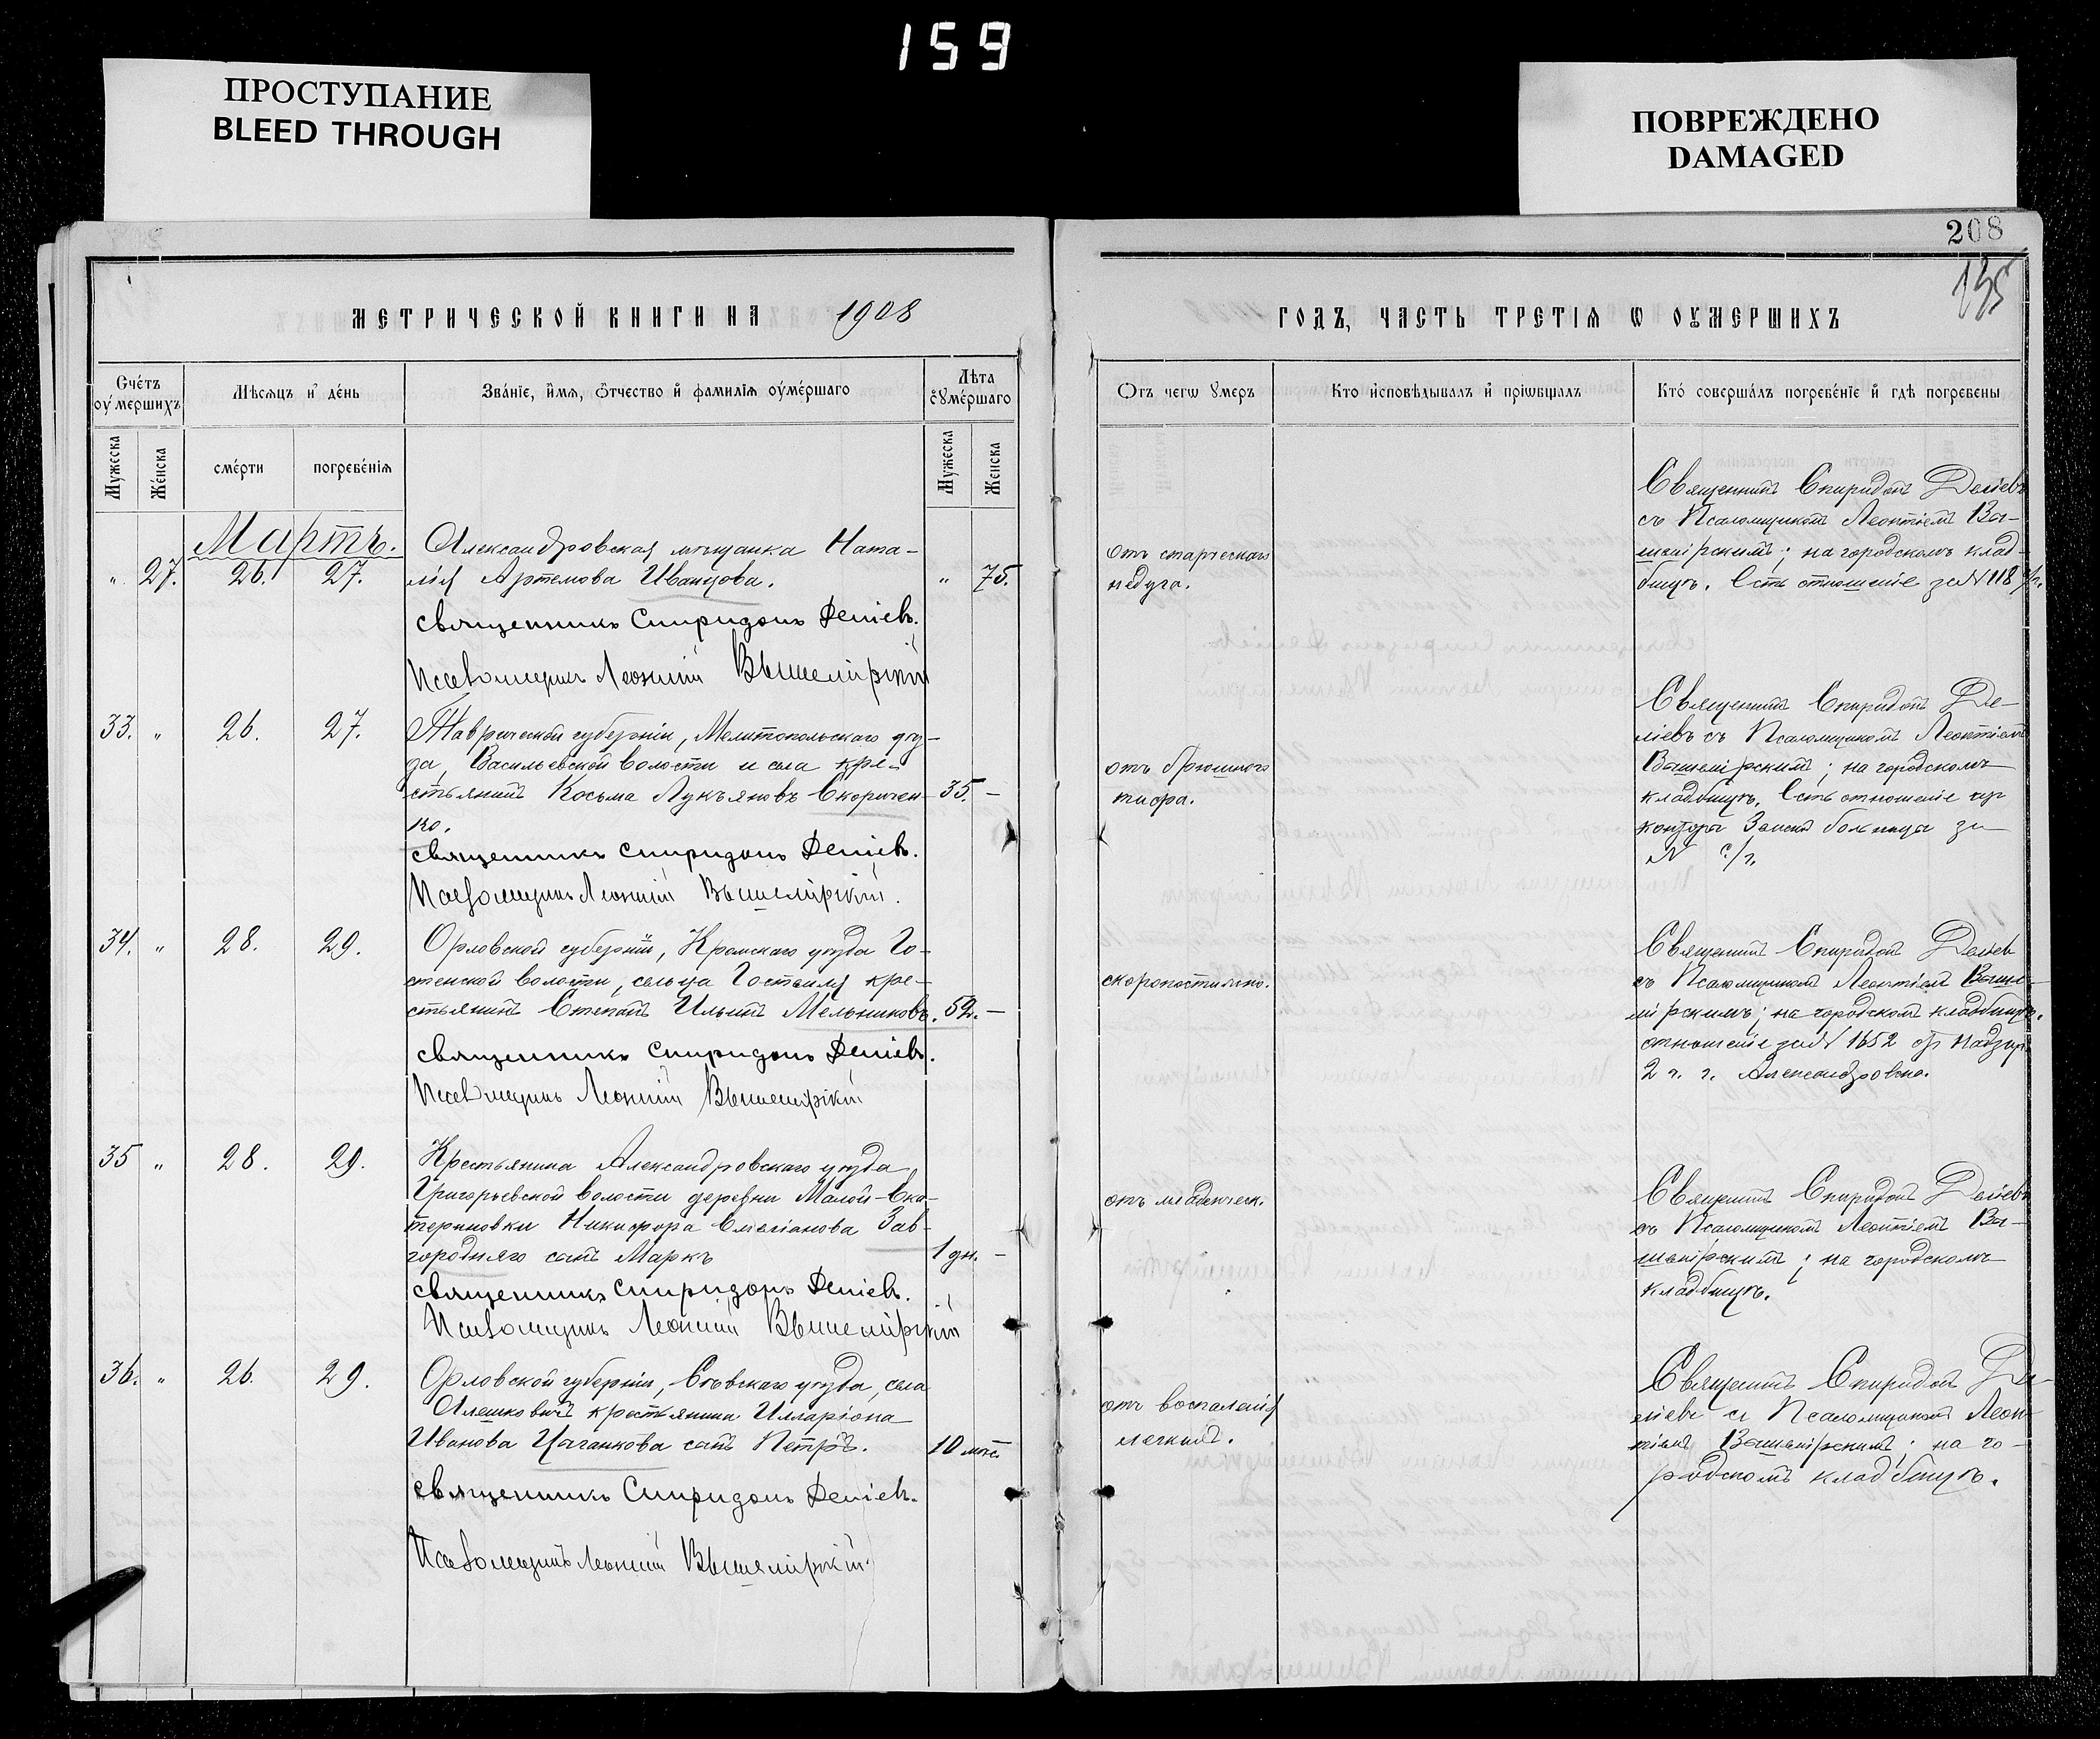 159
ПРОСТУПАНИЕ
BLEED THROUGH
ПОВРЕЖДЕНО
DAMAGED
208
135
МЕТРИЧЕСКОЙ КНИГИ НА 1908
ГОДЪ, ЧАСТЬ ТРЕТІѦ Ѡ ОУМЕРШИХЪ
Счéтъ оумершихъ
Мѣсяцъ и день
Звáніе, имя, отчество и фамилія оумéршаго
Лѣта оумéршаго
Мужеска
Жéнска
смéрти
погребéнія
Мужеска
Женска
Отъ чегѡ умеръ
Кто исповѣдывалъ и пріѡбщалъ
Ктó совершáлъ погребéніе и гдѣ погребены
Мартъ.
„ 27. 26. 27.
Александровская мѣщанка Ната-
лія Артемова Иванцова.
„ 75.
священникъ Спиридонъ Деніевъ.
Псаломщикъ Леонтій Вышемірскій
отъ старческаго
недуга.
Священникъ Спиридонъ Деніевъ
съ Псаломщикомъ Леонтіемъ Вы-
шемірскимъ; на городскомъ клад-
бищѣ. Есть отношеніе за № 118
33. „ 26. 27.
Таврической губерніи, Мелитопольскаго уѣз-
за, Васильевской волости и села кре-
стьянинъ Косьма Лукьяновъ Скоричен-
ко.
35. –
священникъ Спиридонъ Деніевъ.
Псаломщикъ Леонтій Вышемірскій.
отъ брюшного
тифа.
Священникъ Спиридонъ Де-
ніевъ съ Псаломщикомъ Леонтіемъ
Вышемірскимъ; на городскомъ
кладбищѣ. Есть отношеніе изъ
конторы Земской больницы за
№ с/г.
34. „ 28. 29.
Орловской губерніи, Кромскаго уѣзда Го-
стенской волости, сельца Гостомля кре-
стьянинъ Степанъ Ильинъ Мельниковъ.
52. –
священникъ Спиридонъ Деніевъ.
Псаломщикъ Леонтій Вышемірскій
скоропостижно.
Священникъ Спиридонъ Деніевъ
съ Псаломщикомъ Леонтіемъ Выше-
мірскимъ; на городскомъ кладбищѣ.
отношеніе за № 1652 отъ Надзир.
2 ч. г. Александровска.
35 „ 28. 29.
Крестьянина Александровскаго уѣзда
Григорьевской волости деревни Малой-Ека-
териновки Никифора Емеліанова Зав-
городняго сынъ Маркъ
1 дн. –
священникъ Спиридонъ Деніевъ.
Псаломщикъ Леонтій Вышемірскій
отъ младенческ.
Священникъ Спиридонъ Деніевъ
съ Псаломщикомъ Леонтіемъ Вы-
шемірскимъ; на городскомъ
кладбищѣ.
36. „ 26. 29.
Орловской губерніи, Сѣвскаго уѣзда, села
Алешковичъ крестьянина Илларіона
Иванова Цыганкова сынъ Петръ.
10 мѣс.
священникъ Спиридонъ Деніевъ.
Псаломщикъ Леонтій Вышемірскій.
отъ воспаленія
легкихъ.
Священникъ Спиридонъ Де-
ніевъ съ Псаломщикомъ Леон-
тіемъ Вышемірскимъ; на го-
родскомъ кладбищѣ.